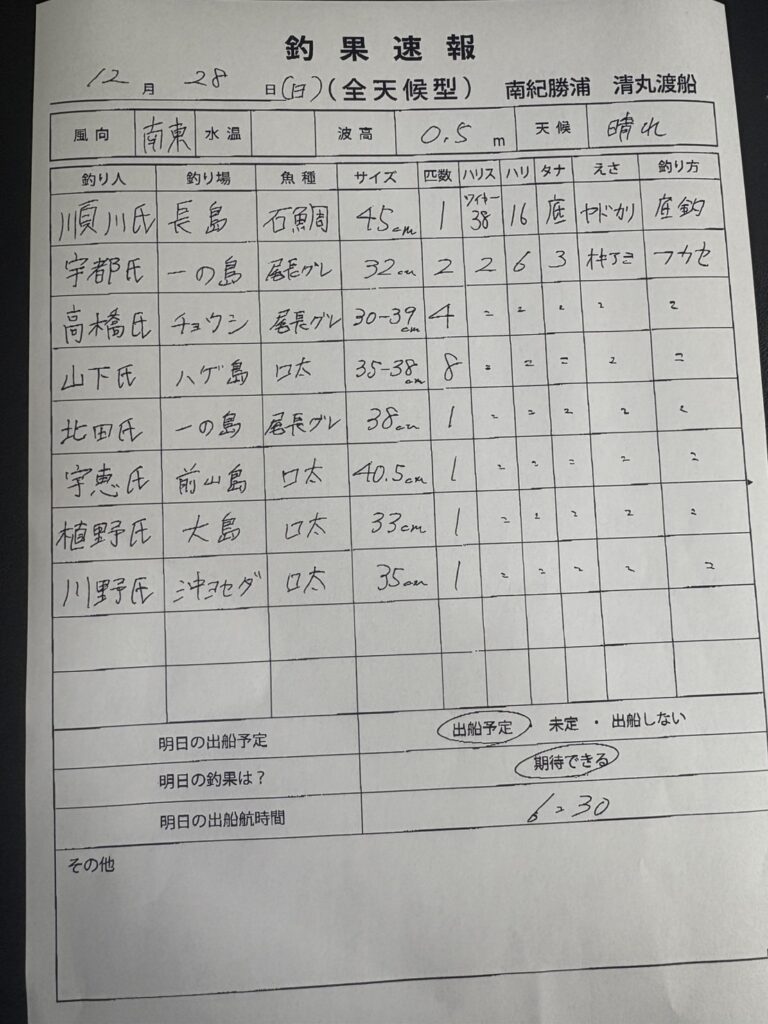 釣果速報
12月28日(日)(全天候型) 南紀勝浦 清丸渡船
風向 南東 水温 波高 0.5 m 天候 晴れ
釣り人 釣り場 魚種 サイズ 匹数 ハリス ハリ タナ えさ 釣り方
順川氏 長島 石鯛 45cm 1 ワイヤー38 16 底 ヤドカリ 底釣
宇都氏 一の島 尾長グレ 32cm 2 2 6 3 オキアミ フカセ
高橋氏 チョウシ 尾長グレ 30-39cm 4 〃 〃 〃 〃 〃
山下氏 ハゲ島 口太 35-38cm 8 〃 〃 〃 〃 〃
北田氏 一の島 尾長グレ 38cm 1 〃 〃 〃 〃 〃
宇恵氏 前山島 口太 40.5cm 1 〃 〃 〃 〃 〃
植野氏 大島 口太 33cm 1 〃 〃 〃 〃 〃
川野氏 沖ヨセダ 口太 35cm 1 〃 〃 〃 〃 〃
明日の出船予定 出船予定・未定・出船しない
明日の釣果は? 期待できる
明日の出船航時間 6:30
その他